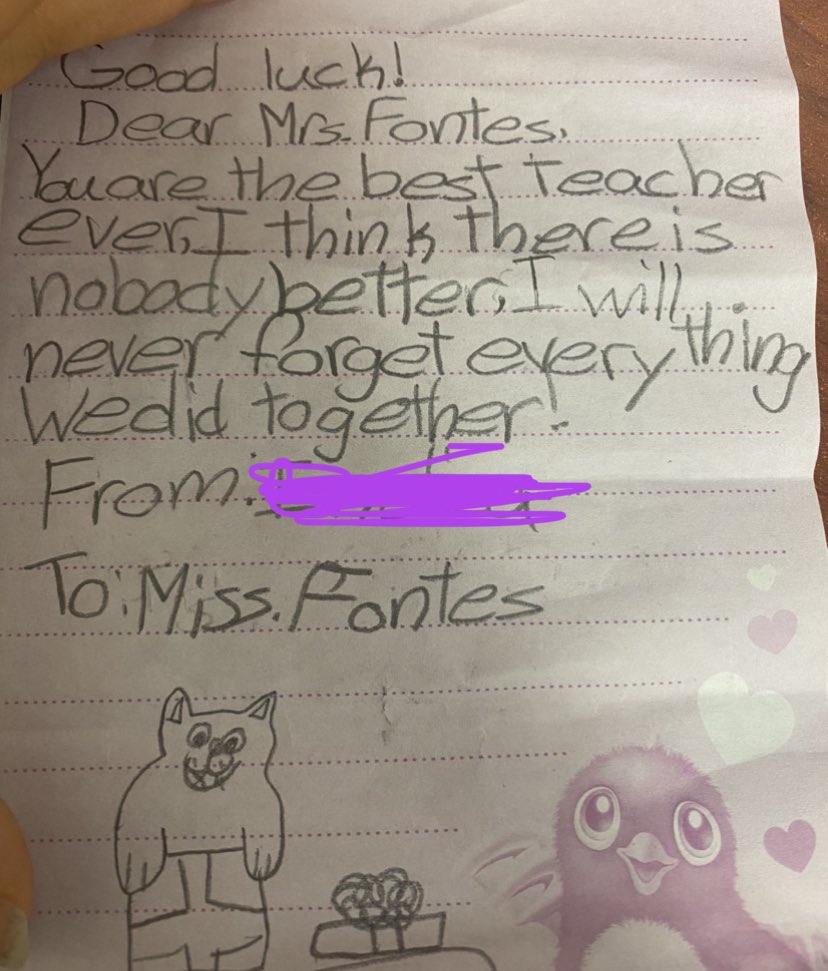 Good luck!
Dear Mrs. Fontes,
You are the best Teacher
ever, I think there is
nobody better, I will
never forget everything
We did together!
From:
To: Miss. Fontes